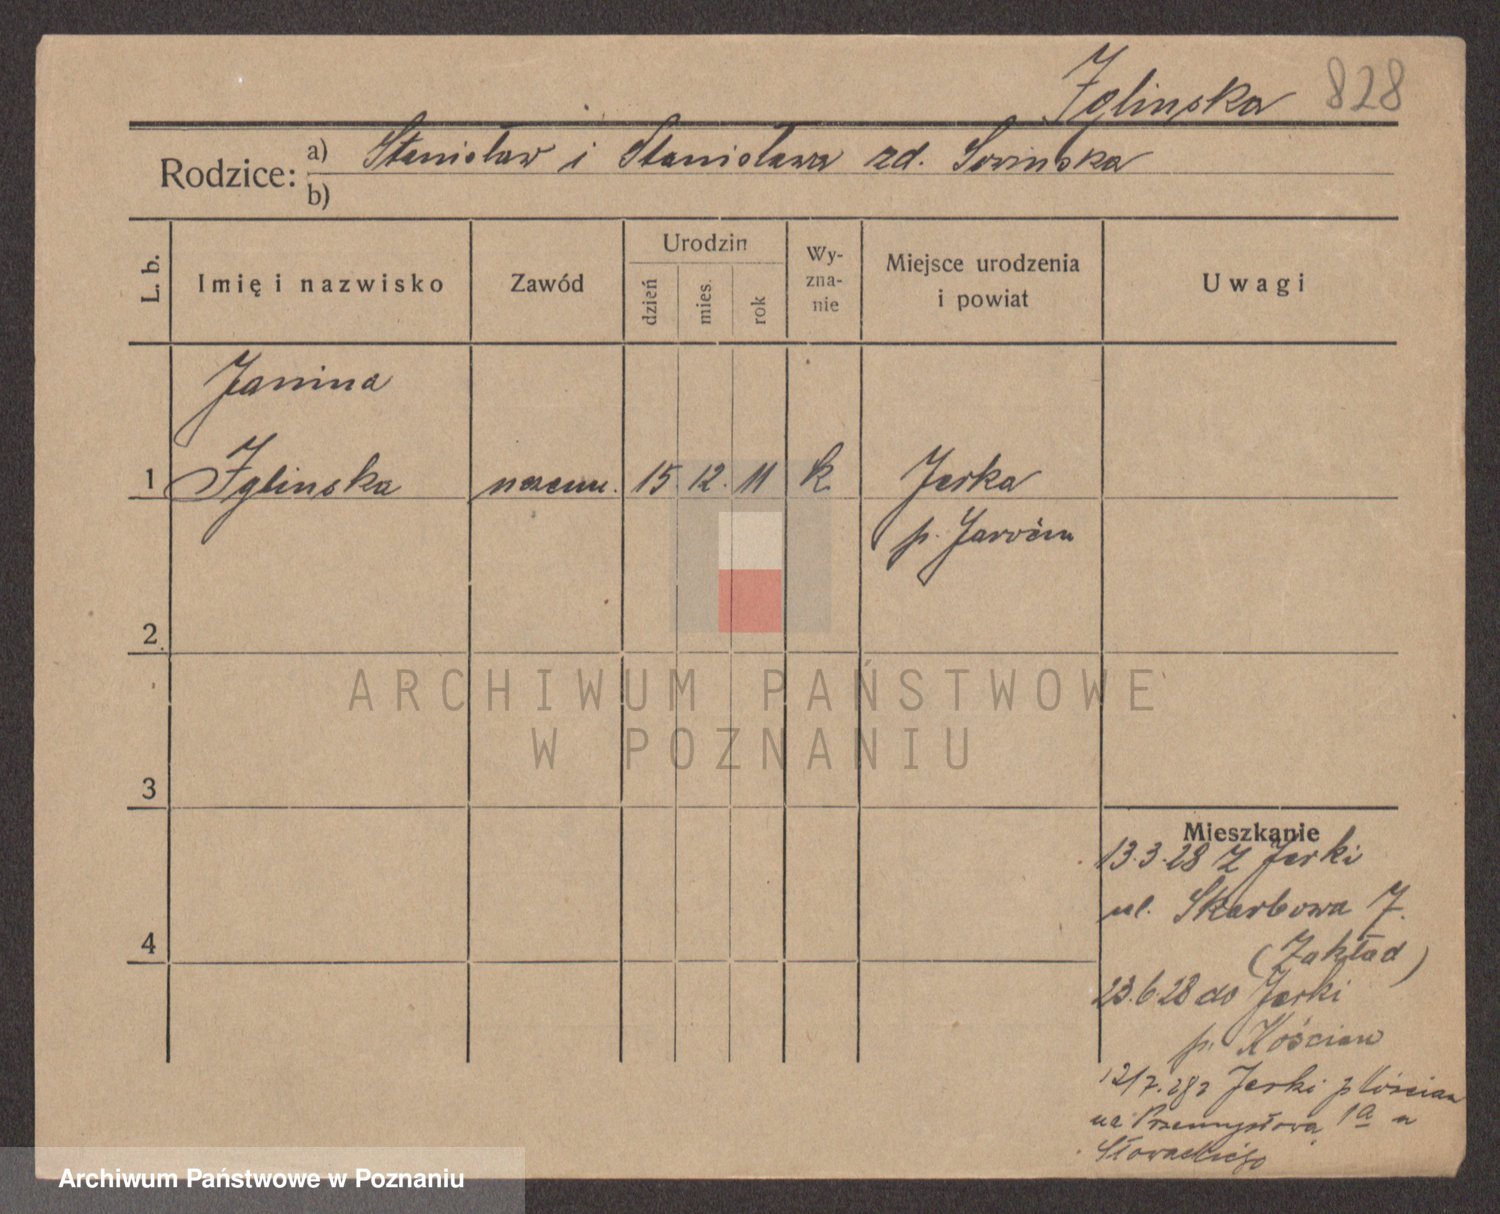 Iglinska 828
Rodzice: a) Stanisław i Stanisława zd. Sosinska
b)
L. b.
Imię i nazwisko
Zawód
Urodzin
dzień
mies.
rok
Wy-
zna-
nie
Miejsce urodzenia
i powiat
Uwagi
Janina
1 Iglinska 15 12. 11 k. Jerka
p. Jarocin
2
ARCHIWUM PAŃSTWOWE
W POZNANIU
3
Mieszkanie
13.3.28 z Jerki
ul. Skarbowa 7.
4
(Zakład)
23.6.28 do Jerki
p. Kościan
12/7.28 z Jerki p Kościan
na Przemysłową 1a u
Słowackiego
Archiwum Państwowe w Poznaniu